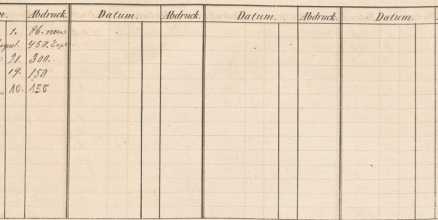 Abdruck. Datum. Abdruck. Datum. Abdruck. Datum.
1. 76.
450.
21. 300.
19. 150
10. 155